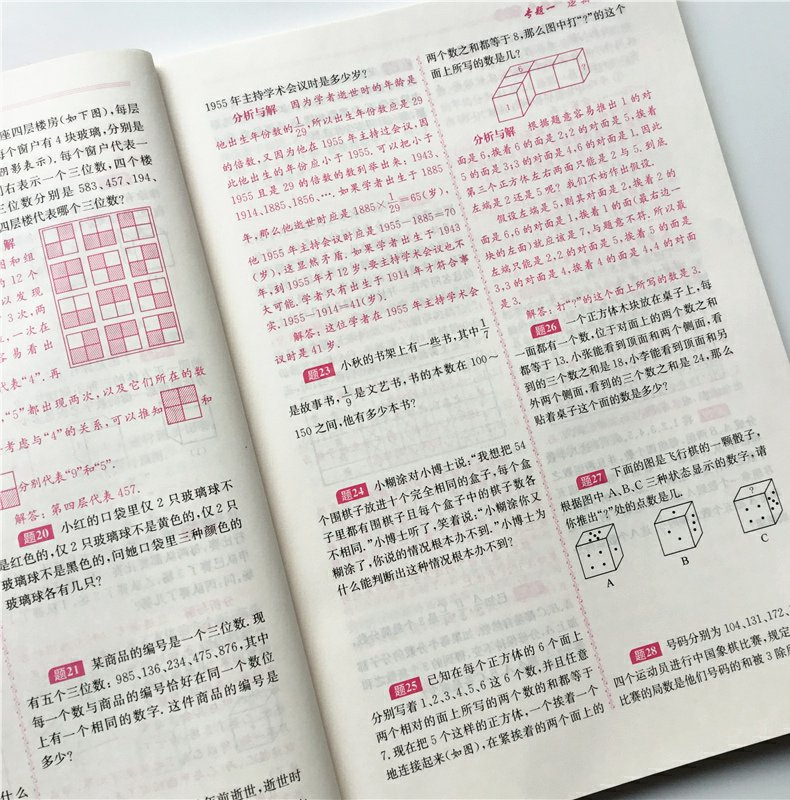 座四层楼房(如下图),每层
每个窗户有4块玻璃,分别是
阴影表示),每个窗户代表一
右表示一个三位数,四个楼
三位数分别是583、457、194、
四层楼代表哪个三位数?
解
图和组
的12个
以发现
3次,两
一次在
容易看出
代表“4”.再
“5”都出现两次,以及它们所在的数
考虑与“4”的关系,可以推知
和
分别代表“9”和“5”.
解答:第四层代表457.
题20 小红的口袋里仅2只玻璃球不
是红色的,仅2只玻璃球不是黄色的,仅2只
玻璃球不是黑色的,问她口袋里三种颜色的
玻璃球各有几只?
题21 某商品的编号是一个三位数.现
有五个三位数:985,136,234,475,876,其中
每一个数与商品的编号恰好在同一个数位
上有一个相同的数字.这件商品的编号是
多少?
什么
年前逝世,逝世时
专题一
1955年主持学术会议时是多少岁?
分析与解 因为学者逝世时的年龄是
他出生年份数的1/29,所以出生年份数应是29
的倍数,又因为他在1955年主持过会议,因
此他出生的年份应小于1955.可以把小于
1955且是29的倍数的数列举出来,1943、
1914、1885、1856、….如果学者出生于1885
年,那么他逝世时应是1885×1/29=65(岁),
他1955年主持会议时应是1955-1885=70
(岁),这显然矛盾.如果学者出生于1943
年,到1955年才12岁,要主持学术会议也不
大可能.学者只有出生于1914年才符合事
实.1955-1914=41(岁).
解答:这位学者在1955年主持学术会
议时是41岁.
题23 小秋的书架上有一些书,其中1/7
是故事书,1/9是文艺书,书的本数在100~
150之间,他有多少本书?
题24 小糊涂对小博士说:“我想把54
个围棋子放进十个完全相同的盒子,每个盒
子里都有围棋子且每个盒子中的棋子数各
不相同.”小博士听了,笑着说:“小糊涂你又
糊涂了,你说的情况根本办不到.”小博士为
什么能判断出这种情况根本办不到?
题25 已知在每个正方体的6个面上
分别写着1,2,3,4,5,6这6个数,并且任意
两个相对的面上所写的两个数的和都等于
7.现在把5个这样的正方体,一个挨着一个
地连接起来(如图),在紧挨着的两个面上的
两个数之和都等于8,那么图中打“?”的这个
面上所写的数是几?
6
?
1
分析与解 根据题意容易推出1的对
面是6,挨着6的面是2;2的对面是5,挨着
5的面是3;3的对面是4,4的面是1,因此
第三个正方体左右两面只能是2与5,到底
左端是2还是5呢?我们不妨作出假设.
假设左端是5,则其对面是2,挨着2的
面是6,6的对面是1,挨着1的面(最右边一
块的左面)就应该是7,与题意不符,所以最
左端只能是2,2的对面是5,挨着5的面是
3,3的对面是4,挨着4的面是4,4的对面
是3.
解答:打“?”的这个面上所写的数是3.
题26 一个正方体木块放在桌子上,每
一面都有一个数,位于对面上的两个数之和
都等于13.小张能看到顶面和两个侧面,看
到的三个数之和是18,小李能看到顶面和另
外两个侧面,看到的三个数之和是24,那么
贴着桌子这个面的数是多少?
题27 下面的图是飞行棋的一颗骰子,
根据图中A、B、C三种状态显示的数字,请
你推出“?”处的点数是几.
?
A
B
C
题28 号码分别为104,131,172,1
四个运动员进行中国象棋比赛,规定
比赛的局数是他们号码的和被3除所